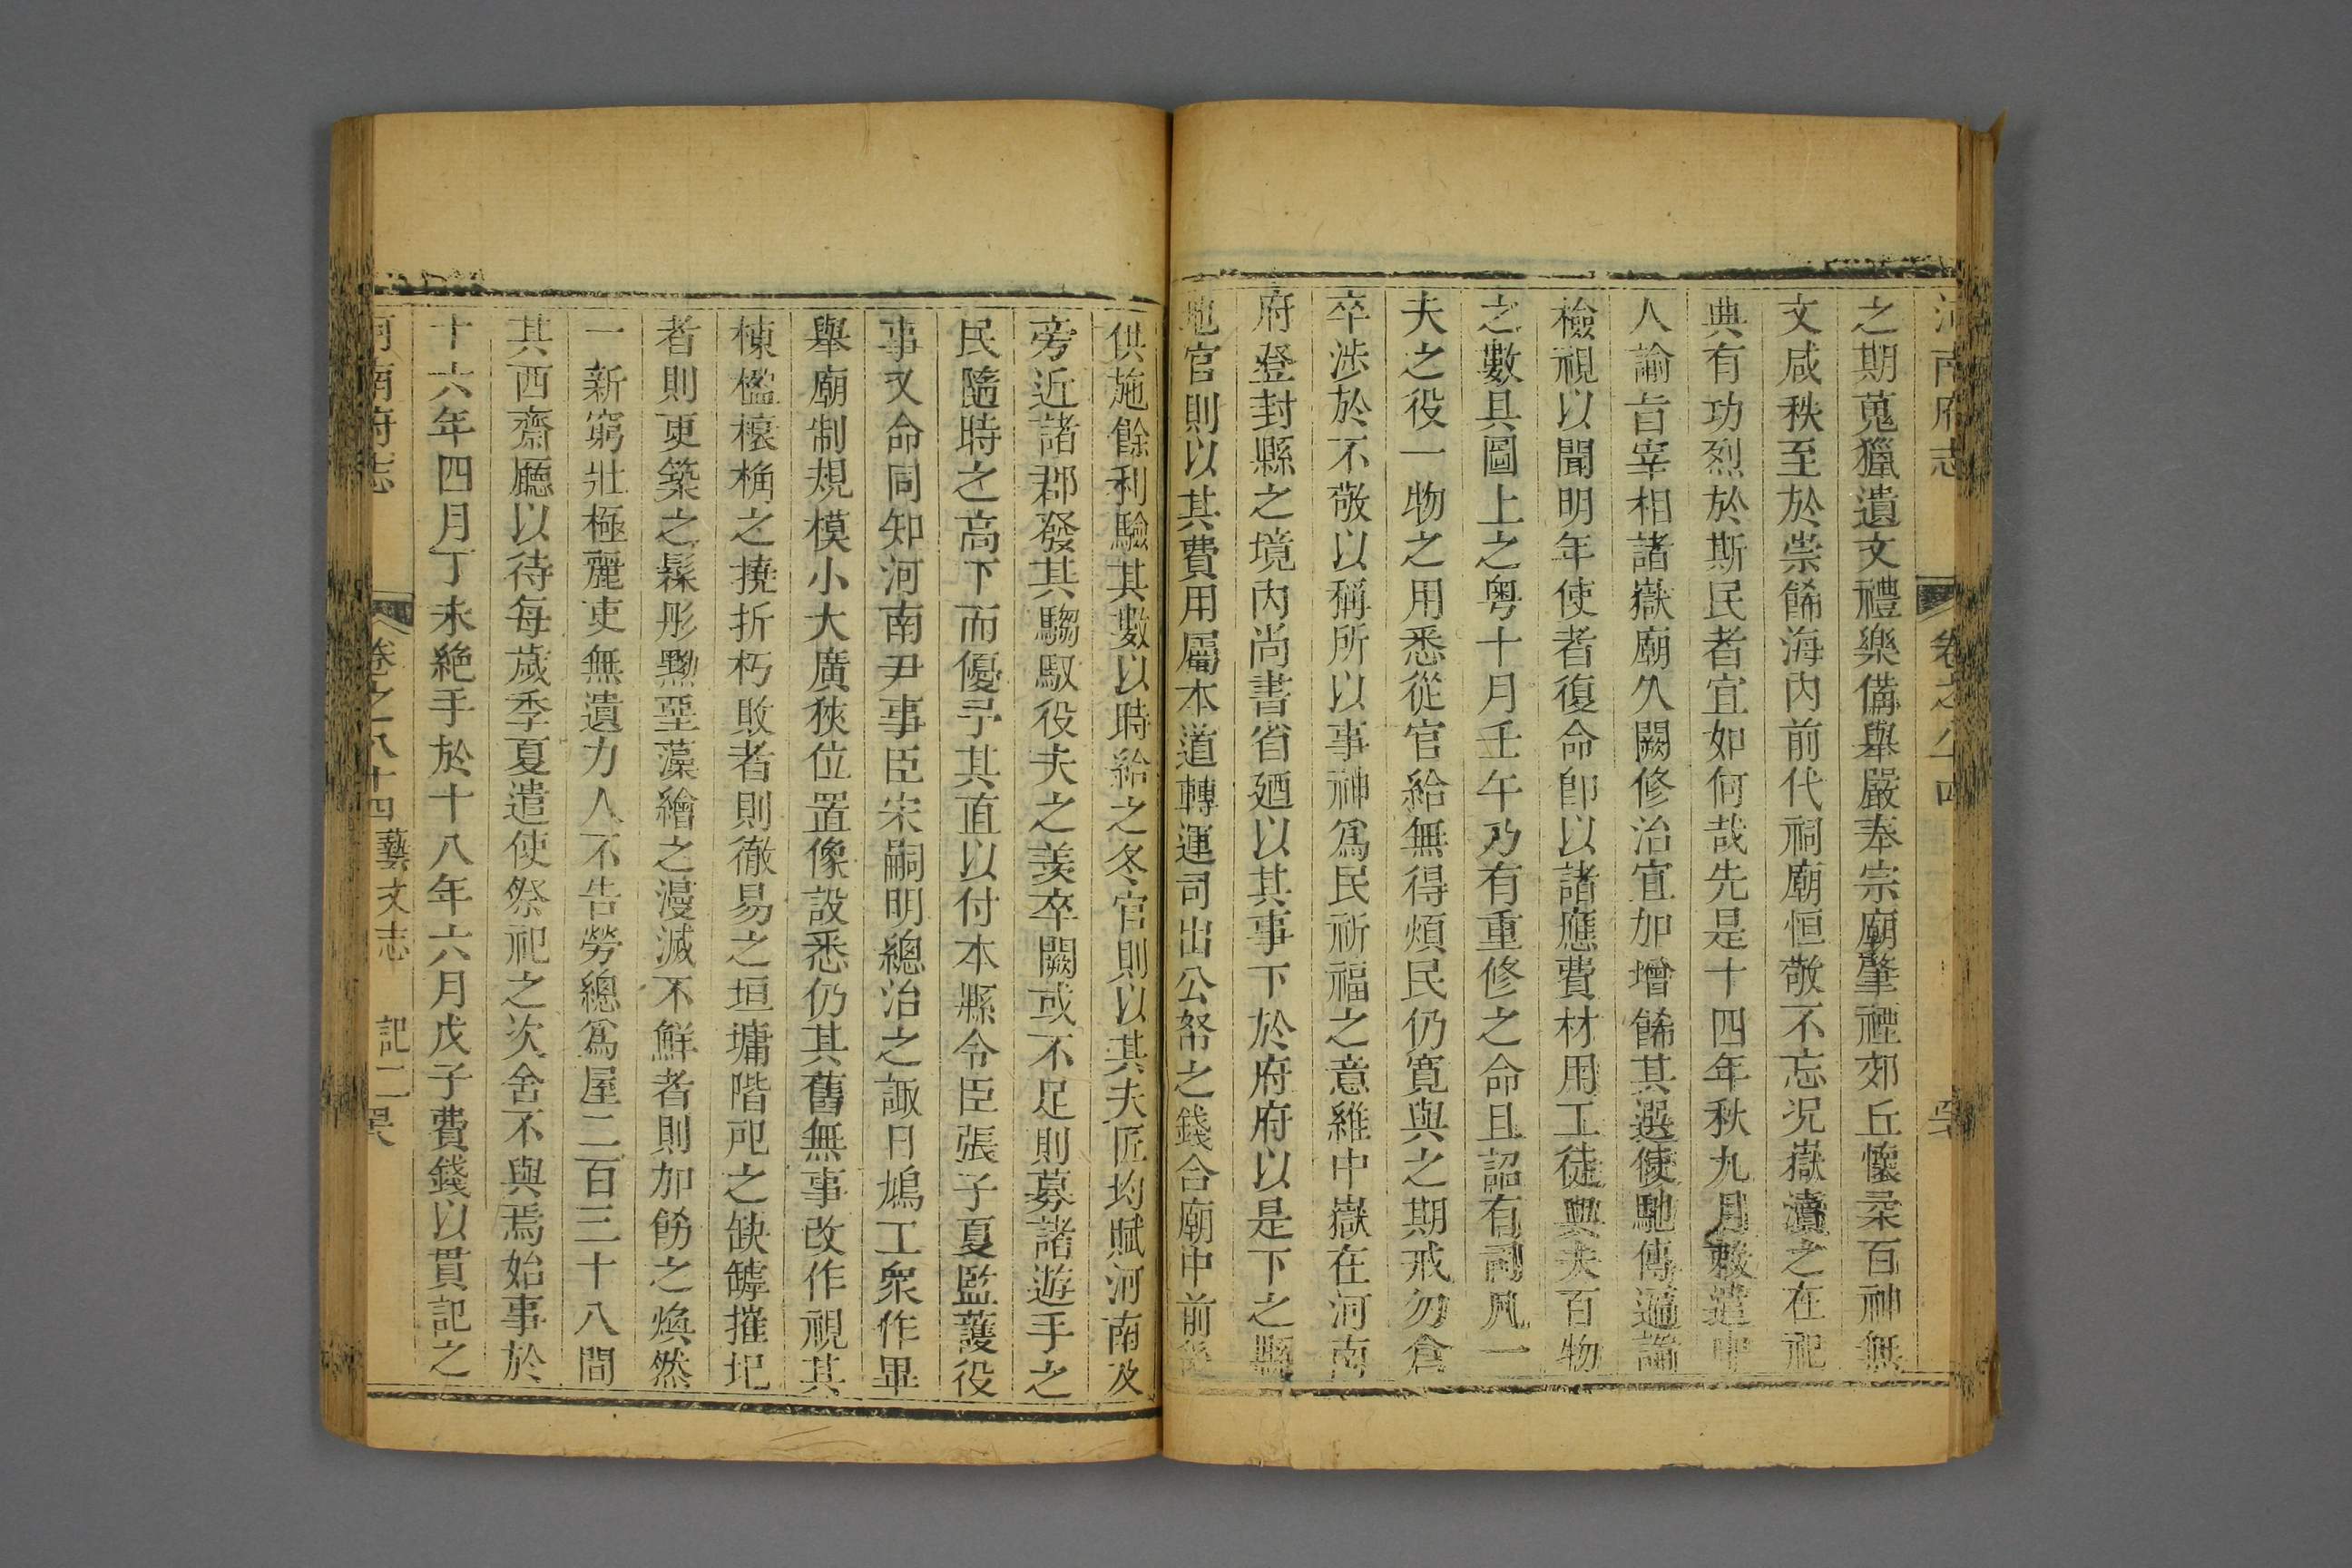 河南府志 卷之八十四
之期蒐獵遺文禮樂備舉嚴奉宗廟肇禋郊丘懷柔百神無
文咸秩至於崇餙海内前代祠廟恒敬不忘况嶽瀆之在祀
典有功烈於斯民者宜如何哉先是十四年秋九月敕遣中
人諭旨宰相諸嶽廟久闕修治宜加增餙其選使馳傳遍詣
檢視以聞明年使者復命卽以諸應費材用工徒興夫百物
之數具圖上之粤十月壬午乃有重修之命且詔有司凡一
夫之役一物之用悉從官給無得煩民仍寛與之期戒勿倉
卒涉於不敬以稱所以事神爲民祈福之意維中嶽在河南
府登封縣之境内尚書省廼以其事下於府府以是下之縣
地官則以其費用屬本道轉運司出公帑之錢合廟中前後
供施餘利驗其數以時給之冬官則以其夫匠均賦河南及
旁近諸郡發其騶馭役夫之羨卒闕或不足則募諸遊手之
民隨時之高下而優予其直以付本縣令臣張子夏監護役
事又命同知河南尹事臣宋嗣明總治之諏日鳩工衆作畢
舉廟制規模小大廣狹位置像設悉仍其舊無事改作視其
棟楹榱桷之撓折朽敗者則徹易之垣墉階戺之缺罅摧圯
者則更築之髹彤黝堊藻繪之漫滅不鮮者則加餙之煥然
一新窮壯極麗吏無遺力人不告勞總爲屋二百三十八間
其西齋廳以待每歲季夏遣使祭祀之次舍不與焉始事於
十六年四月丁未絶手於十八年六月戊子費錢以貫記之
河南府志 卷之八十四 藝文志 記二